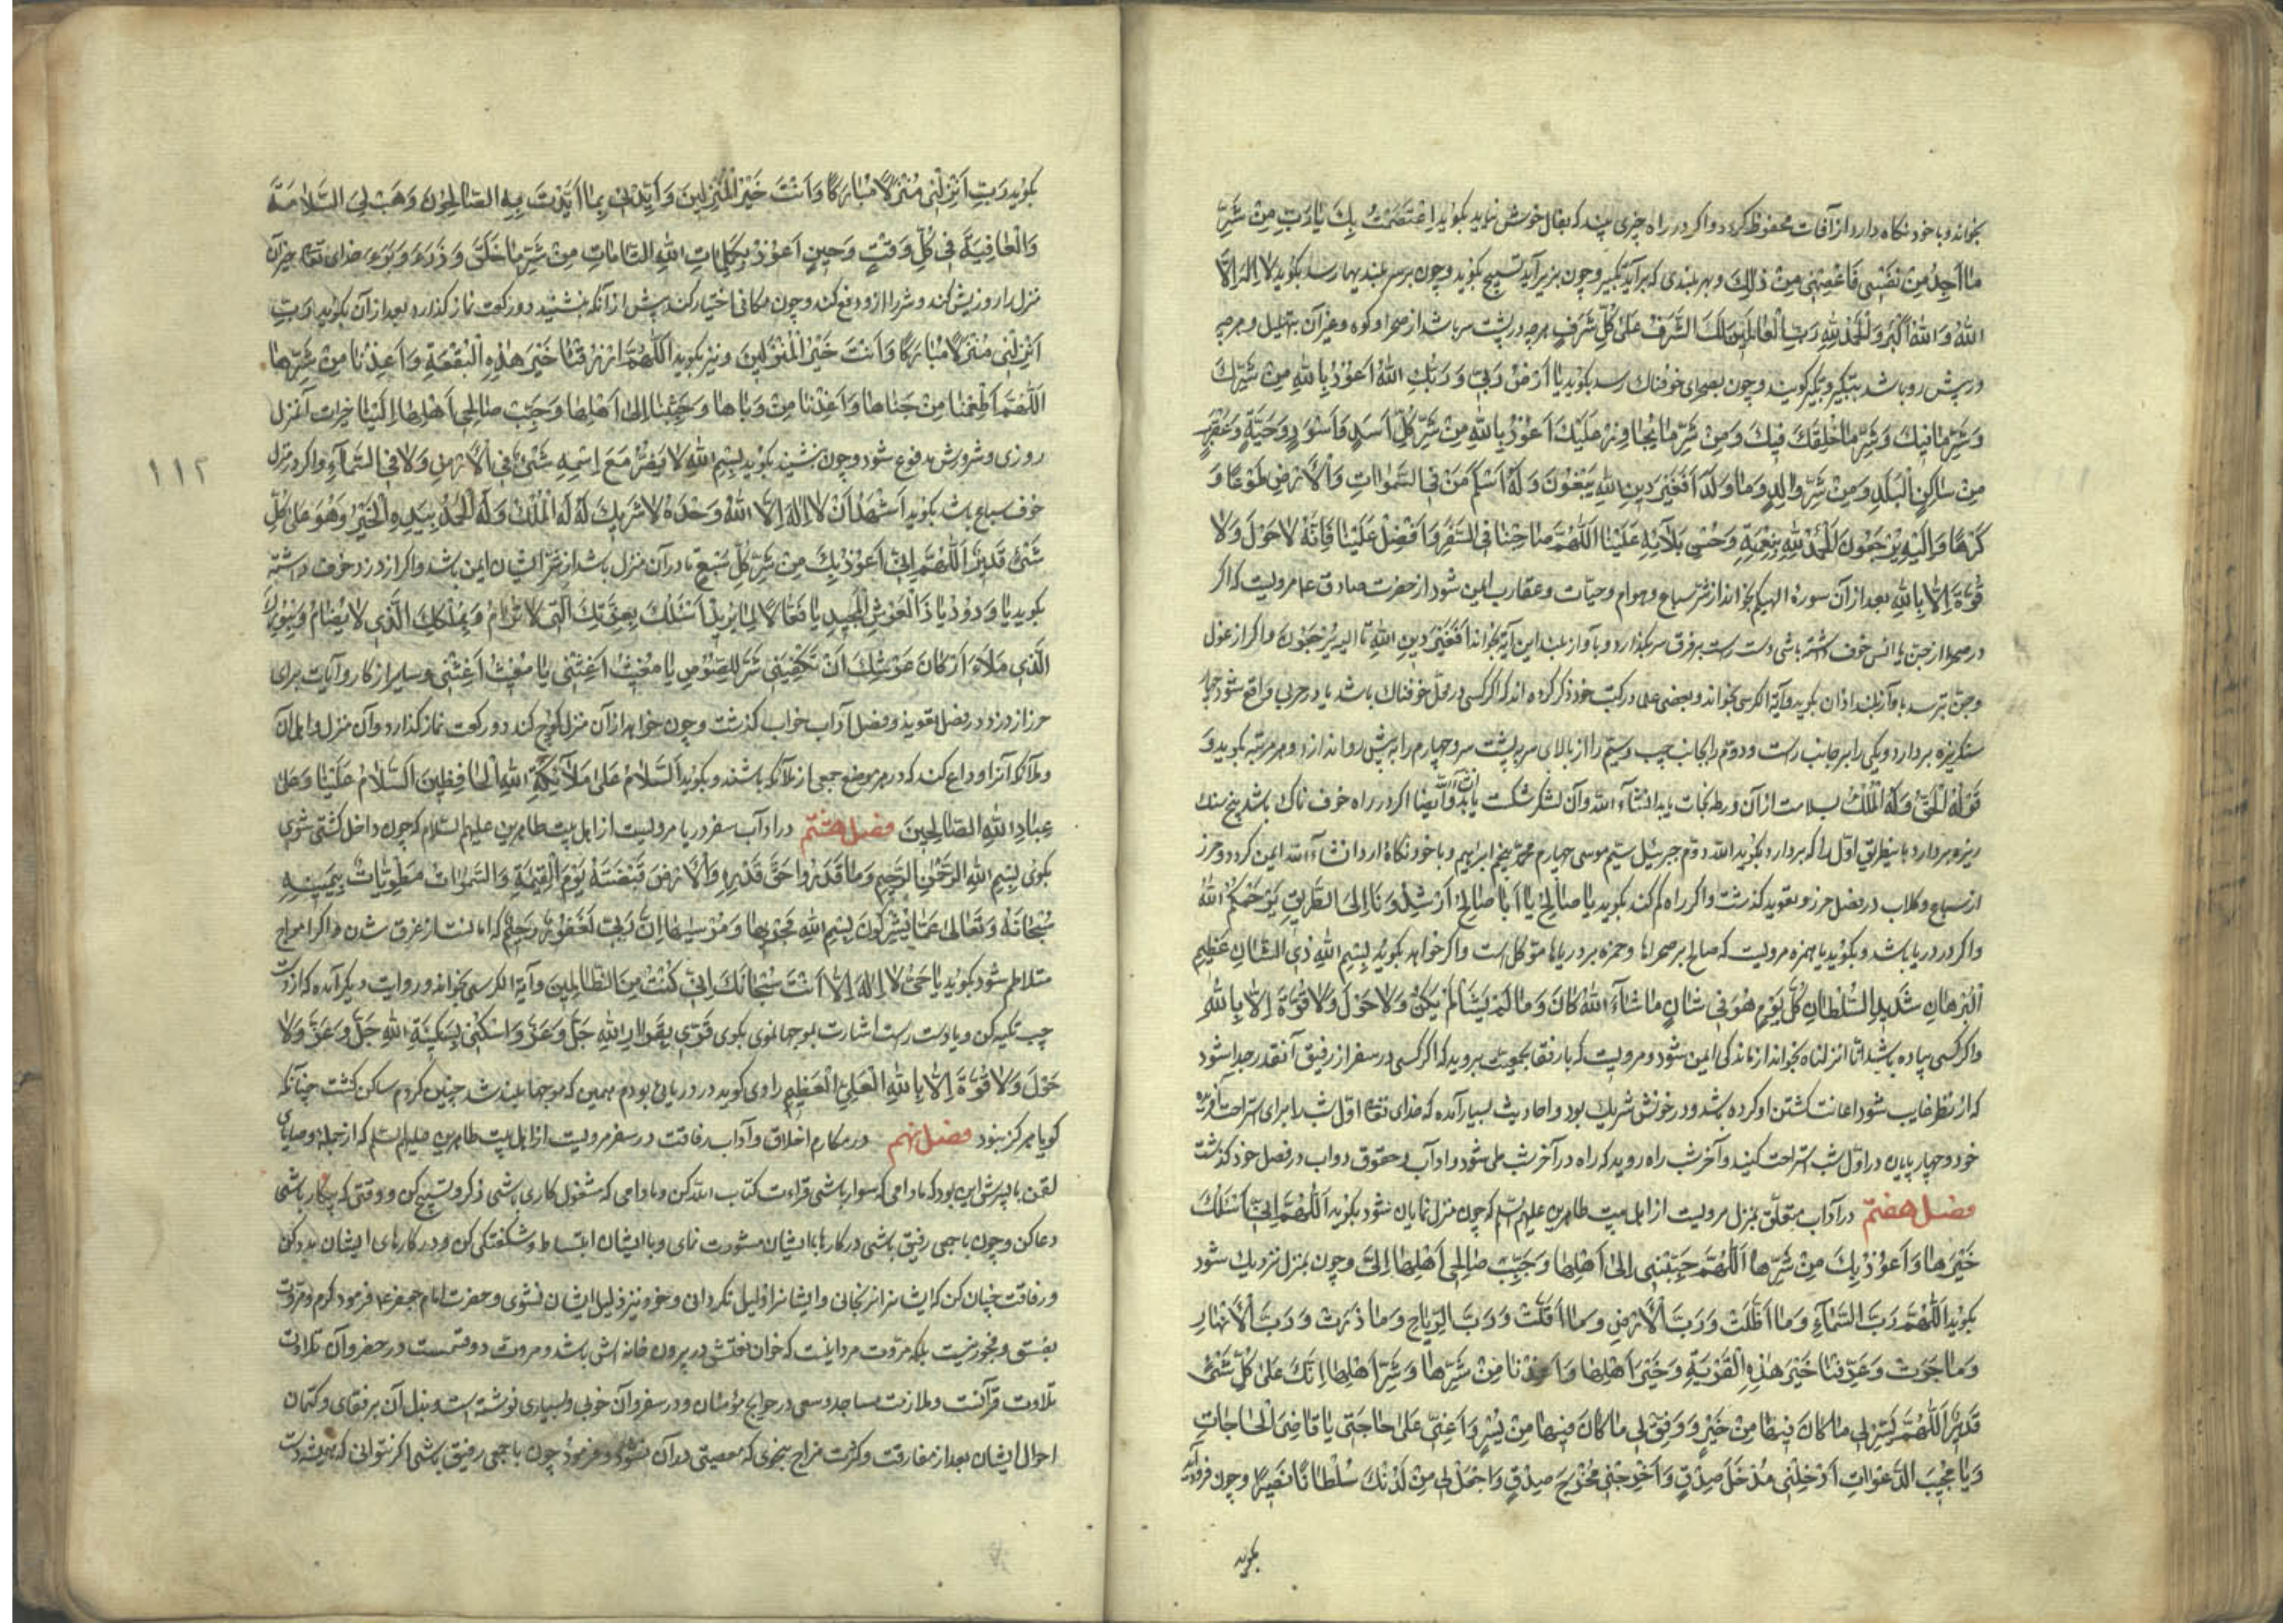 بخواند و با خود نگاه دارد از آفات محفوظ گردد و اگر در راه چیزی بیند که بفال خوش نیاید بگوید اِعْتَصَمْتُ بِكَ یٰا رَبِّ مِنْ شَرِّ
مٰا اَجِدُ مِنْ نَفْسٖی فَاعْصِمْنٖی مِنْ ذٰلِكَ و بهر بلندی که برآید تکبیر و چون بزیر آید تسبیح بگوید و چون بر سر بلندیها رسد بگوید لٰا اِلٰهَ اِلَّا
اللّٰهُ وَ اللّٰهُ اَكْبَرُ وَ الْحَمْدُ لِلّٰهِ رَبِّ الْعٰالَمٖینَ لَكَ الشَّرَفُ عَلیٰ كُلِّ شَرَفٍ هرچه در پشت سر باشد از صحرا و کوه و غیر آن بتهلیل و هرچه
در پیش رو باشد بتکبیر و تکبیر گویند و چون بصحرای خوفناک رسد بگوید یٰا اَرْضُ رَبّٖی وَ رَبُّكِ اللّٰهُ اَعُوذُ بِاللّٰهِ مِنْ شَرِّكِ
وَ شَرِّ مٰا فٖیكِ وَ شَرِّ مٰا خُلِقَ فٖیكِ وَ مِنْ شَرِّ مٰا عَلَیْكِ اَعُوذُ بِاللّٰهِ مِنْ شَرِّ كُلِّ اَسَدٍ وَ اَسْوَدٍ وَ حَیَّةٍ وَ عَقْرَبٍ
مِنْ سٰاكِنِ الْبَلَدِ وَ مِنْ شَرِّ وٰالِدٍ وَ مٰا وَلَدَ اَفَغَیْرَ دٖینِ اللّٰهِ یَبْغُونَ وَ لَهُ اَسْلَمَ مَنْ فِی السَّمٰوٰاتِ وَ الْاَرْضِ طَوْعًا وَ
كَرْهًا وَ اِلَیْهِ یُرْجَعُونَ اَلْحَمْدُ لِلّٰهِ بِنِعْمَتِهٖ وَ حُسْنِ بَلٰائِهٖ عَلَیْنَا اَللّٰهُمَّ صٰاحِبْنٰا فِی السَّفَرِ وَ اَفْضِلْ عَلَیْنٰا فَاِنَّهُ لٰا حَوْلَ وَ لٰا
قُوَّةَ اِلّٰا بِاللّٰهِ بعد از آن سورۀ الهیکم بخواند از شر سباع و هوام و حیات و عقارب ایمن شود از حضرت صادق ع مرویست که اگر
در صحرا از جن یا انس خوف داشته باشی دست راست بر فرق سر بگذارد و بآواز بلند این آیه بخواند اَفَغَیْرَ دٖینِ اللّٰهِ تا الیه یُرْجَعُونَ و اگر از غول
و جن بترسد بآواز بلند اذان بگوید و آیة الکرسی بخواند و بعضی علما در کتب خود ذکر کرده اند که اگر کسی در محل خوفناک باشد یا در حربی واقع شود چهار
سنگریزه بردارد و یکی را بر جانب راست و دوم را بجانب چپ و سیم را از بالای سر به پشت سر و چهارم را به پیش رو اندازد و هر مرتبه بگوید وَ
قَوْلُهُ الْحَقُّ وَ لَهُ الْمُلْكُ بسلامت از آن ورطه نجات یابد انشاء الله و آن لشکر شکست یابد ان شاء الله و ایضا اگر در راه خوف ناک باشد پنج سنک
ریزه بردارد باینطریق اول را که بردارد بگوید الله دوم جبرئیل سیم موسی چهارم محمد پنجم ابراهیم و با خود نگاه دارد انشاء الله ایمن گردد و حرز
از سباع و کلاب در فصل حرز و تعوید گذشت و اگر راه گم کند بگوید یٰا صٰالِحُ یٰا اَبٰا صٰالِحٍ اَرْشِدُونٰا اِلَی الطَّرٖیقِ یَرْحَمُكُمُ اللّٰهُ
و اگر در دریا باشد و بگوید یا حمزه مرویست که صالح بر صحراها و حمزه بر دریاها موکل است و اگر خواهد بگوید بِسْمِ اللّٰهِ ذِی الشَّأْنِ عَظٖیمِ
الْبُرْهٰانِ شَدٖیدِ السُّلْطٰانِ كُلَّ یَوْمٍ هُوَ فٖی شَأْنٍ مٰا شٰاءَ اللّٰهُ كٰانَ وَ مٰا لَمْ یَشَأْ لَمْ یَكُنْ وَ لٰا حَوْلَ وَ لٰا قُوَّةَ اِلّٰا بِاللّٰهِ
و اگر کسی پیاده باشد انا انزلناه بخواند از ماندگی ایمن شود و مرویست که با رفقا بجمعیت بروید که اگر کسی در سفر از رفیق آنقدر جدا شود
که از نظر غایب شود اعانت کشتن او کرده باشد و در خونش شریک بود و احادیث بسیار آمده که خدای تعالی اول شب را برای استراحت آفریده
خود و چهارپایان در اول شب استراحت کنید و آخر شب راه روید که راه در آخر شب طی شود و آداب و حقوق دواب در فصل خود گذشت
فصل هفتم در آداب متعلق بمنزل مرویست از اهل بیت طاهرین علیهم السلام که چون منزل نمایان شود بگوید اَللّٰهُمَّ اِنّٖی اَسْئَلُكَ
خَیْرَهٰا وَ اَعُوذُ بِكَ مِنْ شَرِّهٰا اَللّٰهُمَّ حَبِّبْنٖی اِلیٰ اَهْلِهٰا وَ حَبِّبْ صٰالِحٖی اَهْلِهٰا اِلَیَّ و چون بمنزل نزدیك شود
بگوید اَللّٰهُمَّ رَبَّ السَّمٰاءِ وَ مٰا اَظَلَّتْ وَ رَبَّ الْاَرْضِ وَ مٰا اَقَلَّتْ وَ رَبَّ الرِّیٰاحِ وَ مٰا ذَرَتْ وَ رَبَّ الْاَنْهٰارِ
وَ مٰا جَرَتْ وَ عَرِّفْنٰا خَیْرَ هٰذِهِ الْقَرْیَةِ وَ خَیْرَ اَهْلِهٰا وَ اَعِذْنٰا مِنْ شَرِّهٰا وَ شَرِّ اَهْلِهٰا اِنَّكَ عَلیٰ كُلِّ شَیْءٍ
قَدٖیرٌ اَللّٰهُمَّ یَسِّرْ لٖی مٰا كٰانَ فٖیهٰا مِنْ خَیْرٍ وَ وَفِّقْ لٖی مٰا كٰانَ فٖیهٰا مِنْ یُسْرٍ وَ اَعِنّٖی عَلیٰ حٰاجَتٖی یٰا قٰاضِیَ الْحٰاجٰاتِ
وَ یٰا مُجٖیبَ الدَّعَوٰاتِ اَدْخِلْنٖی مُدْخَلَ صِدْقٍ وَ اَخْرِجْنٖی مُخْرَجَ صِدْقٍ وَ اجْعَلْ لٖی مِنْ لَدُنْكَ سُلْطٰانًا نَصٖیرًا و چون فرود آید
بگوید
بگوید رَبِّ اَنْزِلْنٖی مُنْزَلًا مُبٰارَكًا وَ اَنْتَ خَیْرُ الْمُنْزِلٖینَ وَ اَیِّدْنٖی بِمٰا اَیَّدْتَ بِهِ الصّٰالِحُونَ وَ هَبْ لِیَ السَّلٰامَةَ
وَ الْعٰافِیَةَ فٖی كُلِّ وَقْتٍ وَ حٖینٍ اَعُوذُ بِكَلِمٰاتِ اللّٰهِ التّٰامّٰاتِ مِنْ شَرِّ مٰا خَلَقَ وَ ذَرَءَ وَ بَرَءَ خدای تعالی خیر آن
منزل را روزیش کند و شر را از او دفع کند و چون مکانی اختیار کند پیش از آنکه بنشیند دو رکعت نماز گذارد بعد از آن بگوید رَبِّ
اَنْزِلْنٖی مُنْزَلًا مُبٰارَكًا وَ اَنْتَ خَیْرُ الْمُنْزِلٖینَ و نیز بگوید اَللّٰهُمَّ ارْزُقْنٰا خَیْرَ هٰذِهِ الْبُقْعَةِ وَ اَعِذْنٰا مِنْ شَرِّهٰا
اَللّٰهُمَّ اَطْعِمْنٰا مِنْ جَنٰاهٰا وَ اَعِذْنٰا مِنْ وَبٰاهٰا وَ حَبِّبْنٰا اِلیٰ اَهْلِهٰا وَ حَبِّبْ صٰالِحٖی اَهْلِهٰا اِلَیْنٰا خیرات آنمنزل
روزی و شرورش مدفوع شود و چون بنشیند بگوید بِسْمِ اللّٰهِ لٰا یَضُرُّ مَعَ اِسْمِهٖ شَیْءٌ فِی الْاَرْضِ وَ لٰا فِی السَّمٰاءِ و اگر در منزل
خوف سباع باشد بگوید اَشْهَدُ اَنْ لٰا اِلٰهَ اِلَّا اللّٰهُ وَحْدَهُ لٰا شَرٖیكَ لَهُ لَهُ الْمُلْكُ وَ لَهُ الْحَمْدُ بِیَدِهِ الْخَیْرُ وَ هُوَ عَلیٰ كُلِّ
شَیْءٍ قَدٖیرٌ اَللّٰهُمَّ اِنّٖی اَعُوذُ بِكَ مِنْ شَرِّ كُلِّ سَبُعٍ تا در آن منزل باشد از شر ایشان ایمن باشد و اگر از دزد خوف داشته
بگوید یٰا وَدُودُ یٰا ذَا الْعَرْشِ الْمَجٖیدِ یٰا فَعّٰالًا لِمٰا یُرٖیدُ اَسْئَلُكَ بِعِزَّتِكَ الَّتٖی لٰا تُرٰامُ وَ بِمُلْكِكَ الَّذٖی لٰا یُضٰامُ وَ بِنُورِكَ
الَّذٖی مَلَأَ اَرْكٰانَ عَرْشِكَ اَنْ تَكْفِیَنٖی شَرَّ اللُّصُوصِ یٰا مُغٖیثُ اَغِثْنٖی یٰا مُغٖیثُ اَغِثْنٖی و سایر اذکار و آیات برای
حرز از دزد در فصل تعویذ و فصل آداب خواب گذشت و چون خواهد از آن منزل کوچ کند دو رکعت نماز گذارد و آن منزل و اهل آن
و ملائکه آنرا وداع کند که در هر موضع جمعی از ملائکه باشند و بگوید اَلسَّلٰامُ عَلیٰ مَلٰائِكَةِ اللّٰهِ الْحٰافِظٖینَ اَلسَّلٰامُ عَلَیْنٰا وَ عَلیٰ
عِبٰادِ اللّٰهِ الصّٰالِحٖینَ فصل هشتم در آداب سفر دریا مرویست از اهل بیت طاهرین علیهم السلام که چون داخل کشتی شوی
بگوی بِسْمِ اللّٰهِ الرَّحْمٰنِ الرَّحٖیمِ وَ مٰا قَدَرُوا حَقَّ قَدْرِهٖ وَ الْاَرْضُ قَبْضَتُهُ یَوْمَ الْقِیٰمَةِ وَ السَّمٰوٰاتُ مَطْوِیّٰاتٌ بِیَمٖینِهٖ
سُبْحٰانَهُ وَ تَعٰالیٰ عَمّٰا یُشْرِكُونَ بِسْمِ اللّٰهِ مَجْرٖیهٰا وَ مُرْسٰیهٰا اِنَّ رَبّٖی لَغَفُورٌ رَحٖیمٌ که امانست از غرق شدن و اگر امواج
متلاطم شود بگوید یٰا حَیُّ لٰا اِلٰهَ اِلّٰا اَنْتَ سُبْحٰانَكَ اِنّٖی كُنْتُ مِنَ الظّٰالِمٖینَ و آیة الکرسی بخواند و روایت دیگر آمده که از دست
چپ تکیه کن و با دست راست اشارت بموجها نموی بگوی قَرّٖی بِقَرٰارِ اللّٰهِ جَلَّ وَ عَزَّ وَ اسْكُنٖی بِسَكٖینَةِ اللّٰهِ جَلَّ وَ عَزَّ وَ لٰا
حَوْلَ وَ لٰا قُوَّةَ اِلّٰا بِاللّٰهِ الْعَلِیِّ الْعَظٖیمِ راوی گوید در دریائی بودم همین که موجها بلند شد چنین کردم ساکن گشت چنانکه
گویا هرگز نبود فصل نهم در مکارم اخلاق و آداب رفاقت در سفر مرویست از اهل بیت طاهرین علیهم السلام که از جمله وصایای
لقمن با پسرش این بود که مادامی که سوار باشی قراءت کتاب الله کن و مادامی که مشغول کاری باشی ذکر و تسبیح کن و وقتی که بیکار باشی
دعا کن و چون با جمعی رفیق باشی در کارها با ایشان مشورت نمای و با ایشان انبساط و شکفتگی کن و در کارهای ایشان مدد کن
و رفاقت چنان کن که ایشانرا نرنجانی و ایشانرا ذلیل نگردانی و خود نیز ذلیل ایشان نشوی و حضرت امام جعفر ع فرمود کرم و مروت
بفسق و فجور نیست بلکه مروت مرد اینست که خوان نعمتش در بیرون خانه اش باشد و مروت دو قسمست در حضر و آن
تلاوت قرآنست و ملازمت مساجد و سعی در حوایج مؤمنان و در سفر و آن خوبی و بسیاری توشه است و بذل آن بر رفقای و کتمان
احوال ایشان بعد از مفارقت و کثرت مزاح بنحوی که معصیتی در آن نشود و فرمود چون با جمعی رفیق باشی اگر بتوانی که همیشه دست
١١٢